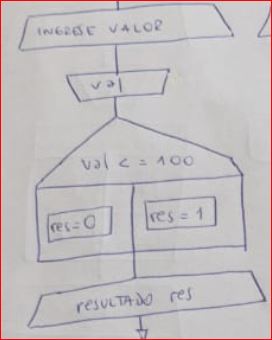 INGRESE VALOR
val
val <= 100
res=0
res=1
RESULTADO res